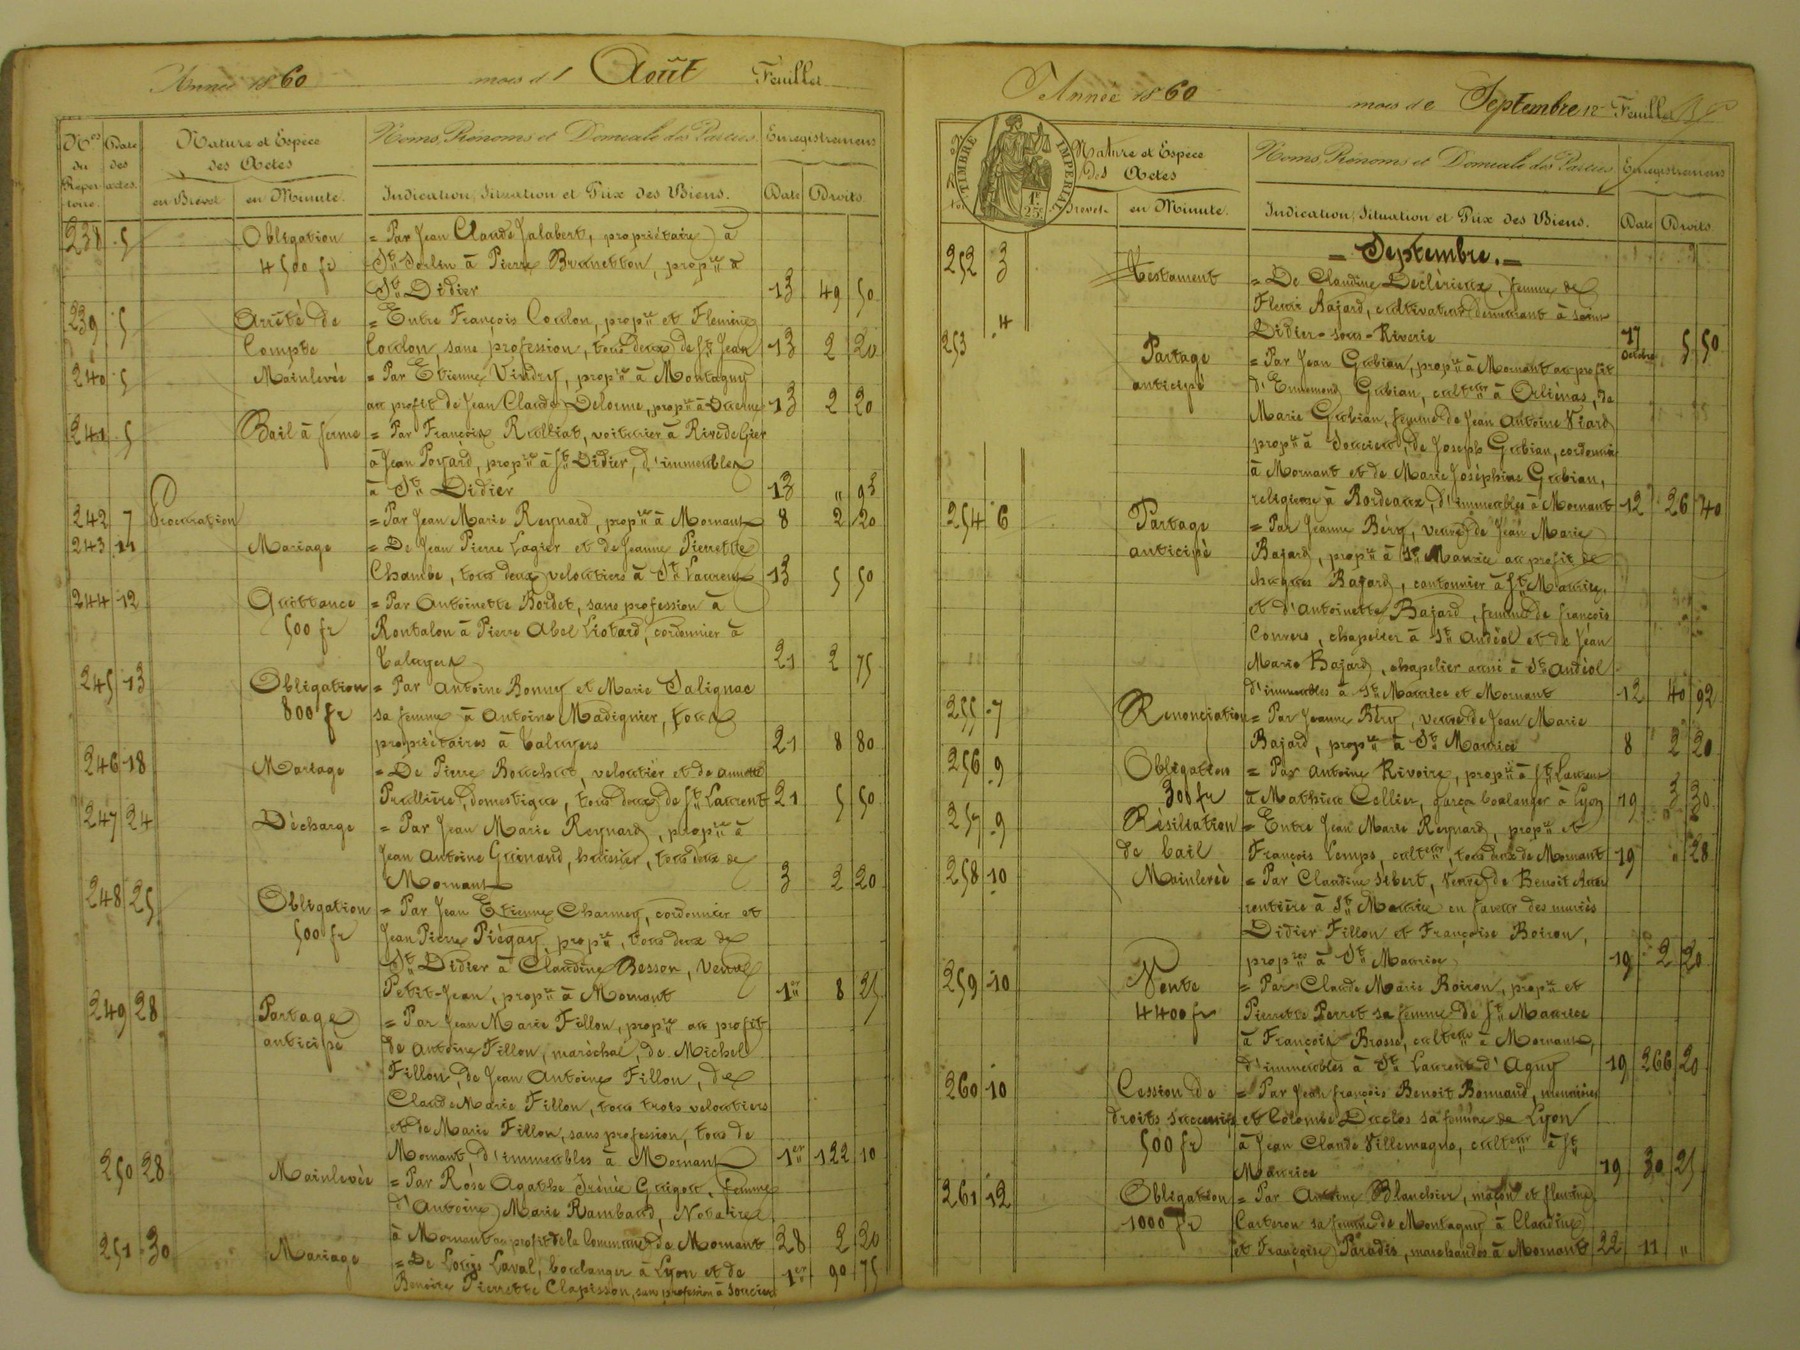 Année 1860 mois d' Août Feuillet
Nos du Réper-toire. Date des actes. Nature et Espèce des Actes Noms, Prénoms et Domicile des Parties. Enregistrement
en Brevet en Minute. Indication, Situation et Prix des Biens. Date Droits.
238 5 Obligation = Par Jean Claude Jalabert, propriétaire à
4500 fr St Sorlin à Pierre Brunetton, propre à
St Didier 13 49 50
239 5 Arrêté de = Entre François Coulon, propre et Fleurine
Compte Coulon, sans profession, tous deux de St Jean 13 2 20
240 5 Mainlevée = Par Etienne Vindry, propre à Montagny
au profit de Jean Claude Delorme, propre à Orliénas 13 2 20
241 5 Bail à ferme = Par François Rulliat, voiturier à Rive de Gier
à Jean Poyard, propre à St Didier, d'immeubles
à St Didier 13 " 93
242 7 Procuration = Par Jean Marie Reynard, propre à Mornant 8 2 20
243 11 Mariage = De Jean Pierre Logier et de Jeanne Pierrette
Chambe, tous deux veloutiers à St Laurent 13 5 50
244 12 Quittance = Par Antoinette Bordet, sans profession à
500 fr Rontalon à Pierre Abel Liotard, cordonnier à
Taluyers 21 2 75
245 13 Obligation = Par Antoine Bonny et Marie Salignac
800 fr sa femme à Antoine Madignier, tous
propriétaires à Taluyers 21 8 80
246 18 Mariage = De Pierre Bouchut, veloutier et de Annette
Prullière, domestique, tous deux de St Laurent 21 5 50
247 24 Décharge = Par Jean Marie Reynard, propre à
Jean Antoine Guinand, huissier, tous deux de
Mornant 3 2 20
248 25 Obligation = Par Jean Etienne Charmey, cordonnier et
500 fr Jean Pierre Piégay, propre, tous deux de
St Didier à Claudine Besson, veuve
Petit-Jean, propre à Mornant 1er 8 25
249 28 Partage = Par Jean Marie Fillon, propre au profit
anticipé de Antoine Fillon, maréchal, de Michel
Fillon, de Jean Antoine Fillon, de
Claude Marie Fillon, tous trois veloutiers
et de Marie Fillon, sans profession, tous de
Mornant d'immeubles à Mornant 1er 122 10
250 28 Mainlevée = Par Rose Agathe Irénée Guigou, femme
d'Antoine Marie Rambaud, Notaire
à Mornant au profit de la Commune de Mornant 28 2 20
251 30 Mariage = De Louis Laval, boulanger à Lyon et de
Benoite Pierrette Clapisson, sans profession à Soucieu 1er 90 75
Année 1860 mois de Septembre 12e Feuillet
TIMBRE IMPERIAL
1F 25C
Nature et Espèce des Actes Noms, Prénoms et Domicile des Parties. Enregistrement
Brevet. en Minute. Indication, Situation et Prix des Biens. Date Droits.
= Septembre. =
252 3 Testament = De Claudine Déclérieux, femme de
Fleuri Bajard, cultivateur demeurant à Saint
Didier-sous-Riverie 17 octobre 5 50
253 4 Partage = Par Jean Gubian, propre à Mornant au profit
anticipé d'Ennemond Gubian, culteur à Orliénas, de
Marie Gubian, femme de Jean Antoine Viard
propre à Soucieu, de Joseph Gubian, cordonnier
à Mornant et de Marie Joséphine Gubian,
religieuse à Bordeaux, d'immeubles à Mornant 12 26 40
254 6 Partage = Par Jeanne Béry, veuve de Jean Marie
anticipé Bajard, propre à St Maurice au profit de
Jacques Bajard, cantonnier à St Maurice,
et d'Antoinette Bajard, femme de François
Convers, chapelier à St Andéol et de Jean
Marie Bajard, chapelier aussi à St Andéol
d'immeubles à St Maurice et Mornant 12 40 92
255 7 Renonciation = Par Jeanne Béry, veuve de Jean Marie
Bajard, propre à St Maurice 8 2 20
256 9 Obligation = Par Antoine Rivoire, propre à St Laurent
300 fr à Mathieu Cellier, garçon boulanger à Lyon 19 3 30
257 9 Résiliation = Entre Jean Marie Reynard, propre et
de bail François Lemps, culteur, tous deux de Mornant 19 " 28
258 10 Mainlevée = Par Claudine Sibert, veuve de Benoit
rentière à St Maurice en faveur des mariés
Didier Fillon et Françoise Boiron,
propres à St Maurice 19 2 20
259 10 Vente = Par Claude Marie Boiron, propre et
4400 fr Pierrette Perret sa femme de St Maurice
à François Brosse, culteur à Mornant,
d'immeubles à St Laurent d'Agny 19 266 20
260 10 Cession de = Par Jean François Benoit Bonnand, menuisier
droits successifs et Colombe Duclos sa femme de Lyon
500 fr à Jean Claude Villemagne, culteur à St
Maurice 19 30 25
261 12 Obligation = Par Antoine Blanchier, maçon et fleurine
1000 fr Carteron sa femme de Montagny à Claudine
et Françoise Paradis, marchandes à Mornant 22 11 "